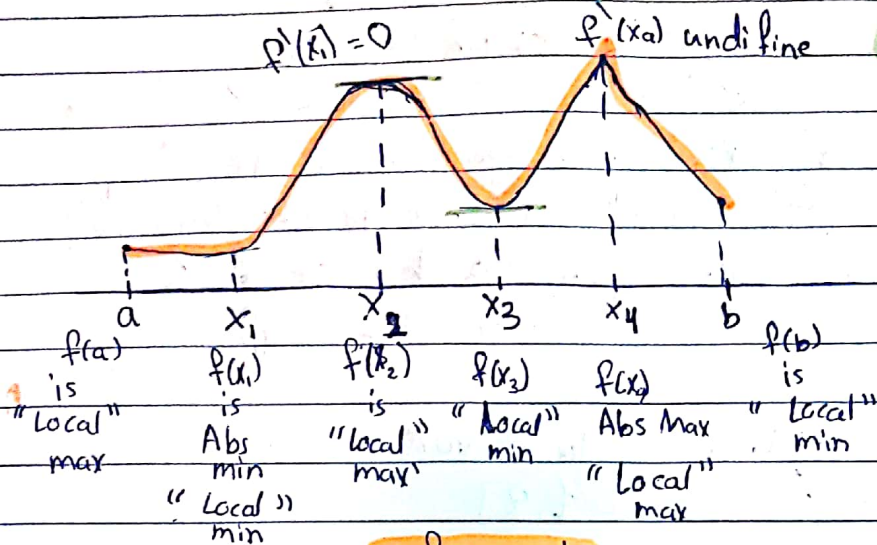 f'(x₁) = 0
f'(xa) undifine
a x₁ x₂ x3 x4 b
f(a)
is
"Local"
max
f(x₁)
is
Abs
min
"Local"
min
f(x₂)
is
"Local"
max
f(x₃)
"Local"
min
Abs Max
"Local"
max
f(b)
is
"Local"
min